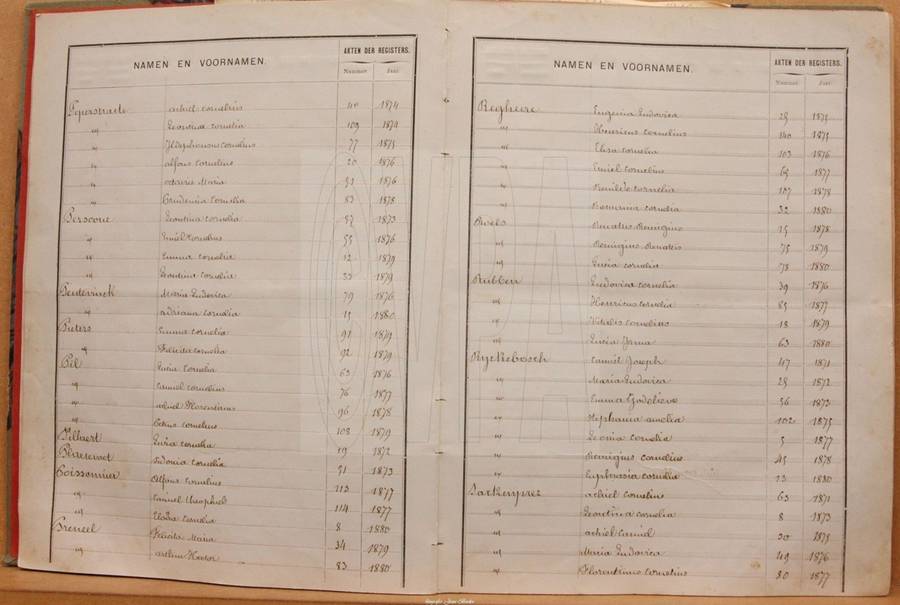 NAMEN EN VOORNAMEN.
AKTEN DER REGISTERS.
Nummer Jaar
achiel cornelius 40 1874
" Leontina cornelia 109 1874
" Ildephonsus cornelius 77 1875
" alfons cornelius 20 1876
" octavie Maria 51 1876
" Prudentia cornelia 83 1878
Persoone Leontina cornelia 87 1873
" Emiel cornelius 55 1876
" Emma cornelia 12 1879
" Leontina cornelia 33 1879
Maria Ludovica 79 1876
" adriana cornelia 15 1880
Pieters Emma cornelia 91 1879
" Felicita cornelia 92 1879
Pil Lucia cornelia 63 1876
" Camiel cornelius 76 1877
" achiel Florentinus 96 1878
" cornelius 108 1879
Pillaert Lucia cornelia 19 1872
Sidonia cornelia 51 1873
Poissonnier Alfons cornelius 113 1877
" Camiel theophiel 114 1877
" Elodia cornelia 8 1880
Preneel Felicita Maria 34 1879
" arthur Hector 83 1880
NAMEN EN VOORNAMEN.
AKTEN DER REGISTERS.
Nummer Jaar
Regheere Eugenia Ludovica 28 1875
" Henricus cornelius 140 1875
" Elisa cornelia 103 1876
" Emiel cornelius 65 1877
" Romilde cornelia 107 1878
" Romania cornelia 32 1880
Roels Renatus Remigius 15 1878
" Remigius Renatus 75 1879
" Lucia cornelia 78 1880
Rubben Ludovica cornelia 39 1876
" Henricus cornelius 85 1877
" Vitalis cornelius 18 1879
" Lucia 63 1880
Ryckebosch Camiel Joseph 47 1871
" Maria Ludovica 28 1872
" Emma Godelieve 56 1873
" Stephania amelia 102 1875
" Leonia cornelia 5 1877
" Remigius cornelius 45 1878
" Euphrasia cornelia 13 1880
Sarkenprez achiel cornelius 63 1871
" Leontina cornelia 8 1873
" achiel Camiel 30 1875
" Maria Ludovica 49 1876
" Florentinus cornelius 80 1877